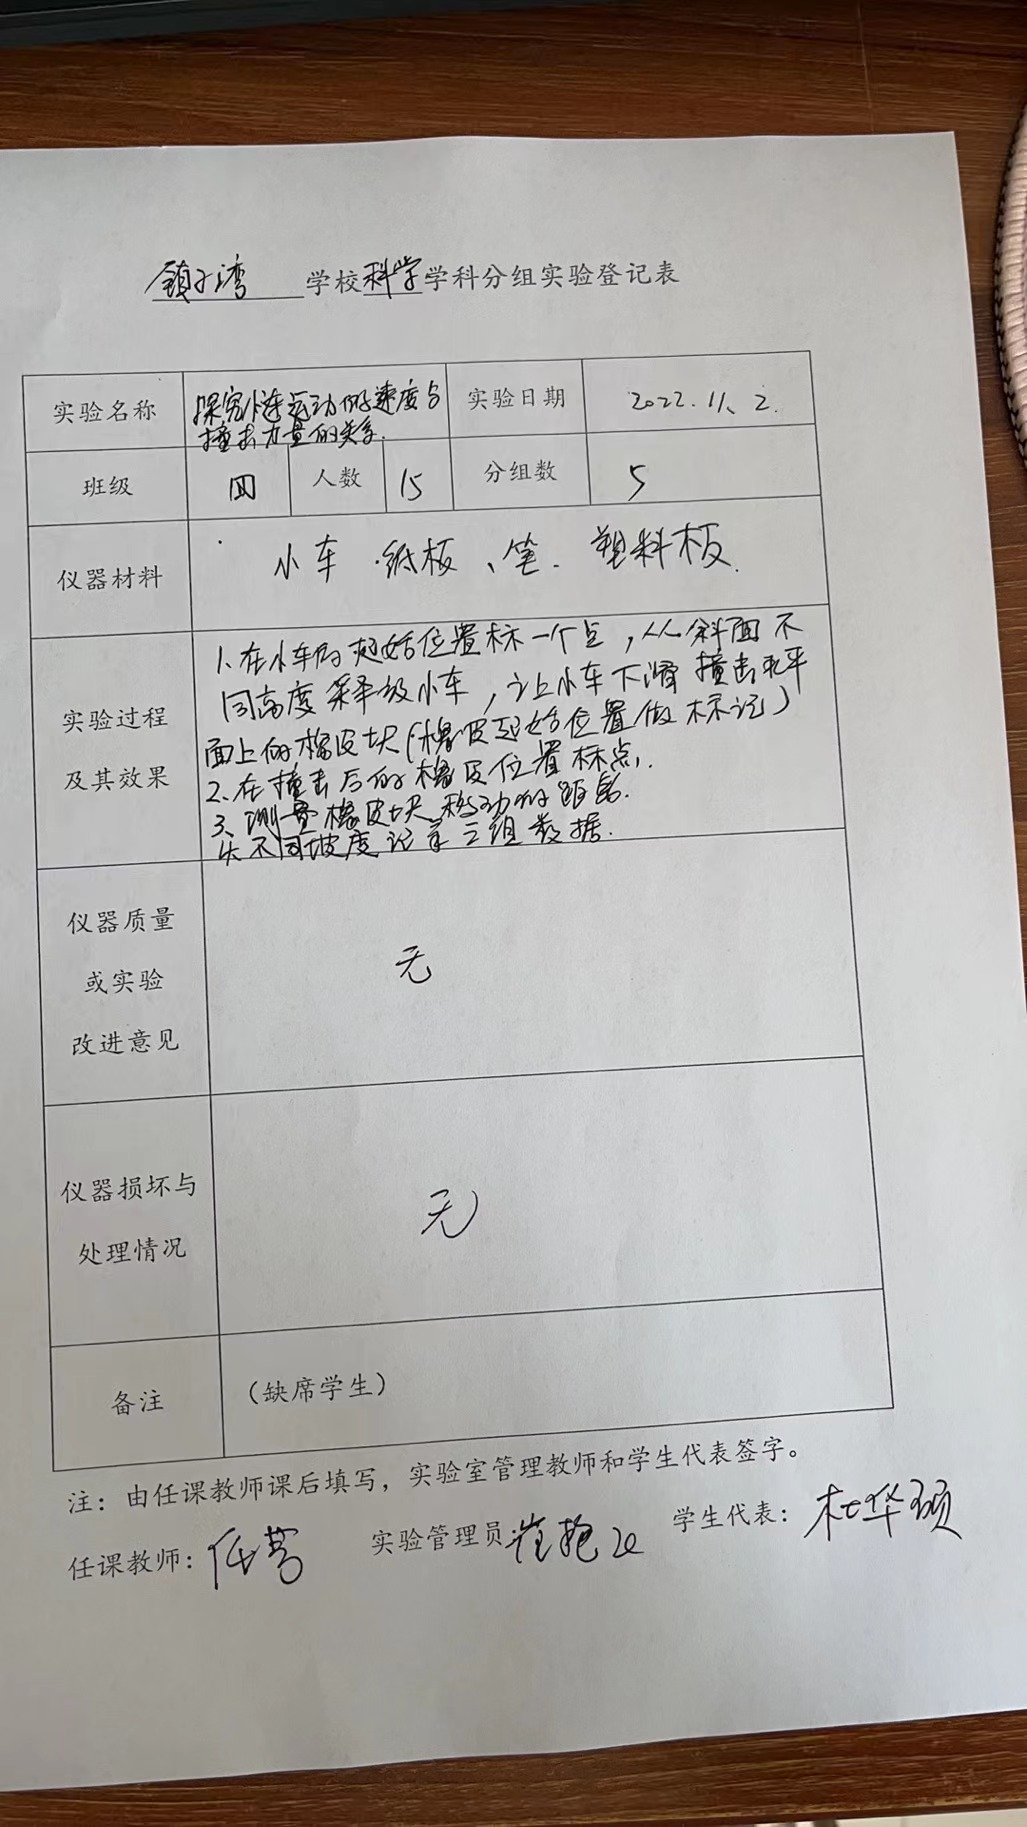 镇子湾 学校科学学科分组实验登记表
实验名称 探究小车运动的速度与 实验日期 2022.11.2.
撞击力量的关系.
班级 四 人数 15 分组数 5
仪器材料 小车、纸板、笔、塑料板.
1.在小车的起始位置标一个点，从斜面不
同高度 小车，让小车下滑撞击水平
实验过程
面上的橡皮块(橡皮起始位置做标记)
及其效果
2.在撞击后的橡皮位置标点.
3.测量橡皮块移动的距离.
4.不同坡度记录三组数据.
仪器质量
或实验 无
改进意见
仪器损坏与 无
处理情况
备注 （缺席学生）
注：由任课教师课后填写，实验室管理教师和学生代表签字。
任课教师： 实验管理员 学生代表：杜华硕